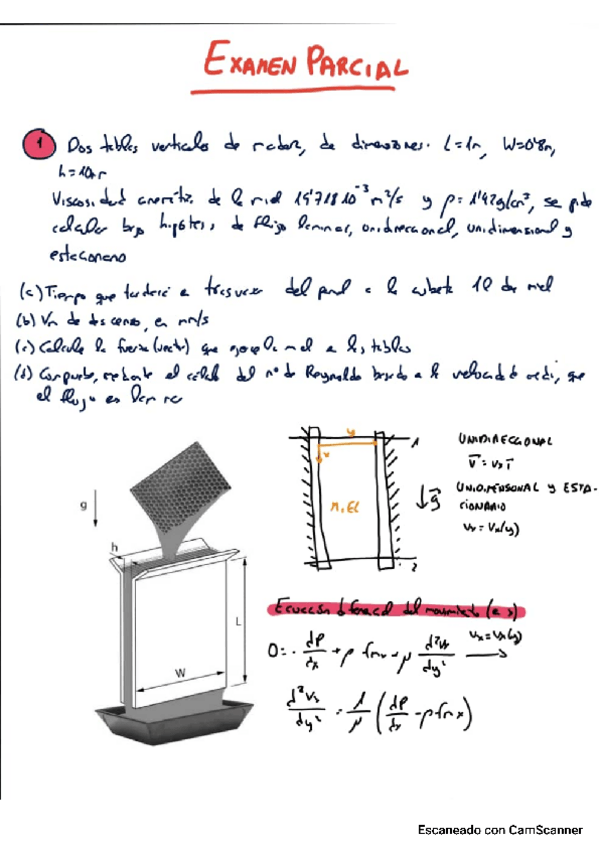 EXAMEN PARCIAL
1 Dos tablas verticales de madera, de dimensiones: L=1m, W=0'8m,
h=10mm
Viscosidad cinemática de la miel 19'718 10⁻³ m²/s y ρ=1'42g/cm³, se pide
calcular bajo hipótesis de flujo laminar, unidireccional, unidimensional y
estacionario
(a) Tiempo que tardará en trasvasar del panal a la cubeta 10 de miel
(b) Vm de descenso, en mm/s
(c) Calcula la fuerza (vector) que ejerce la miel a las tablas
(d) Comprueba, mediante el cálculo del nº de Reynolds basado en la velocidad media, que
el flujo es laminar
g
h
L
W
y
x
1
MIEL
g
2
UNIDIRECCIONAL
V = vx i
UNIDIMENSIONAL Y ESTA-
CIONARIO
vx = vx(y)
Ecuación diferencial del movimiento (en x)
0 = - dP/dx + ρ fmx + μ d²vx/dy² vx=vx(y)
d²vx/dy² = 1/μ (dP/dx - ρ fmx)
Escaneado con CamScanner